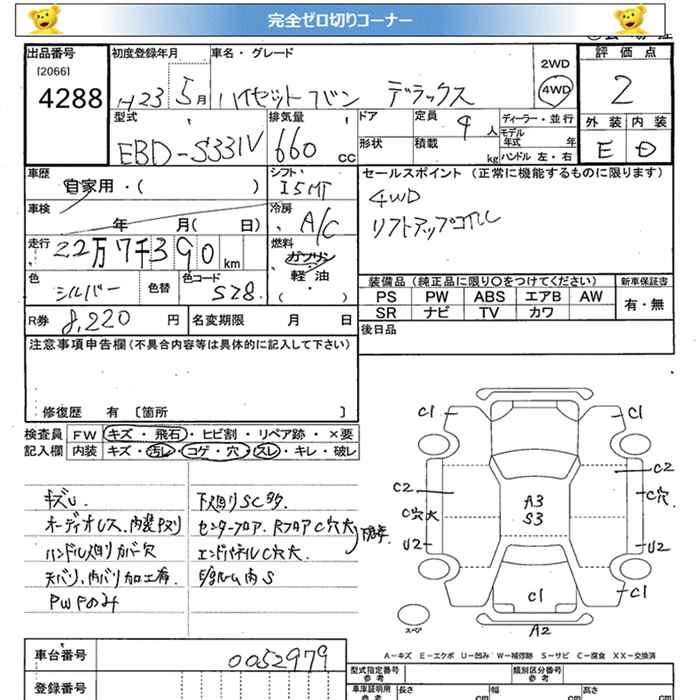 完全ゼロ切りコーナー
出品番号 初度登録年月 車名・グレード 2WD 評価点
[2066] H23 5月 ハイゼットバン デラックス 4WD 2
4288
型式 排気量 ドア 定員 4人 ディーラー・並行 外装 内装
EBD-S331V 660cc 形状 積載 kg モデル年式 年 E D
ハンドル 左・右
車歴 シフト セールスポイント (正常に機能するものに限ります)
自家用・( ) I5MT 4WD
車検 冷房 リフトアップコイル
年 月( 日) A/C
走行 22万7千390km 燃料
ガソリン
色 色替 色コード 軽・油 装備品 (純正品に限り○をつけてください) 新車保証書
シルバー S28. ( ・ ) PS PW ABS エアB AW 有・無
SR ナビ TV カワ
R券 8,220円 名変期限 月 日 後日品
注意事項申告欄 (不具合内容等は具体的に記入して下さい)
修復歴 有 〔箇所 〕
検査員 FW キズ・飛石・ヒビ割・リペア跡・×要
記入欄 内装 キズ・汚レ・コゲ・穴・スレ・キレ・破レ
キズU. 下廻りSC多
オーディオレス、内装中メリ センターフロア、RフロアC穴大
ハンドル廻りカバー穴 エンドパネルC穴大
天バリ、内バリ加工有. E/gルーム内S
PWFのみ
C1 C1
C2 C2
C穴大 A3 C穴
S3
U2 U2
C1 C1
C1
スペア A2
A-キズ E-エクボ U-凹み W-補修跡 S-サビ C-腐食 XX-交換済
車台番号 0052979 型式指定番号 参考 類別区分番号 参考
登録番号 車庫証明所 参考 長さ cm 幅 cm 高さ cm